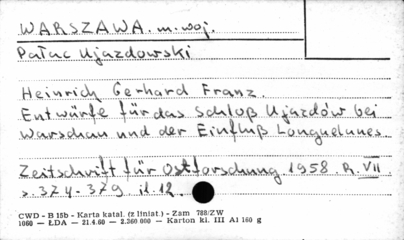 WARSZAWA. m. woj.
Pałac Ujazdowski
Heinrich Gerhard Franz.
Entwürfe für das Schloß Ujazdów bei
Warschau und der Einfluß Longuelunes
Zeitschrift für Ostforschung 1958. R. VII
s. 374-379 il. 12.
CWD - B 15b - Karta katal. (z liniat.) - Zam 788/ZW
1060 — ŁDA — 21.4.60 — 2.360 000 — Karton kl. III A1 160 g